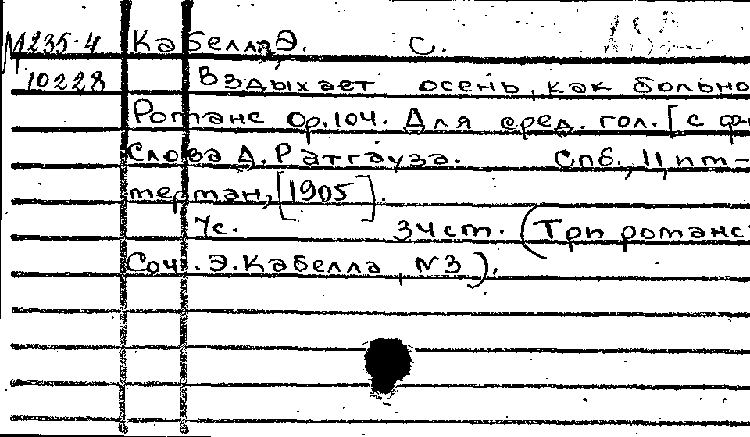 М235-4 Кабелла Э. С.
10228 Вздыхает осень, как больно
Романс op.104. Для сред. гол. [с ф
Слова Д. Ратгауза. Спб.,
терман, [1905].
7с. 34 ст. (Три романс
Соч. Э. Кабелла, №3).